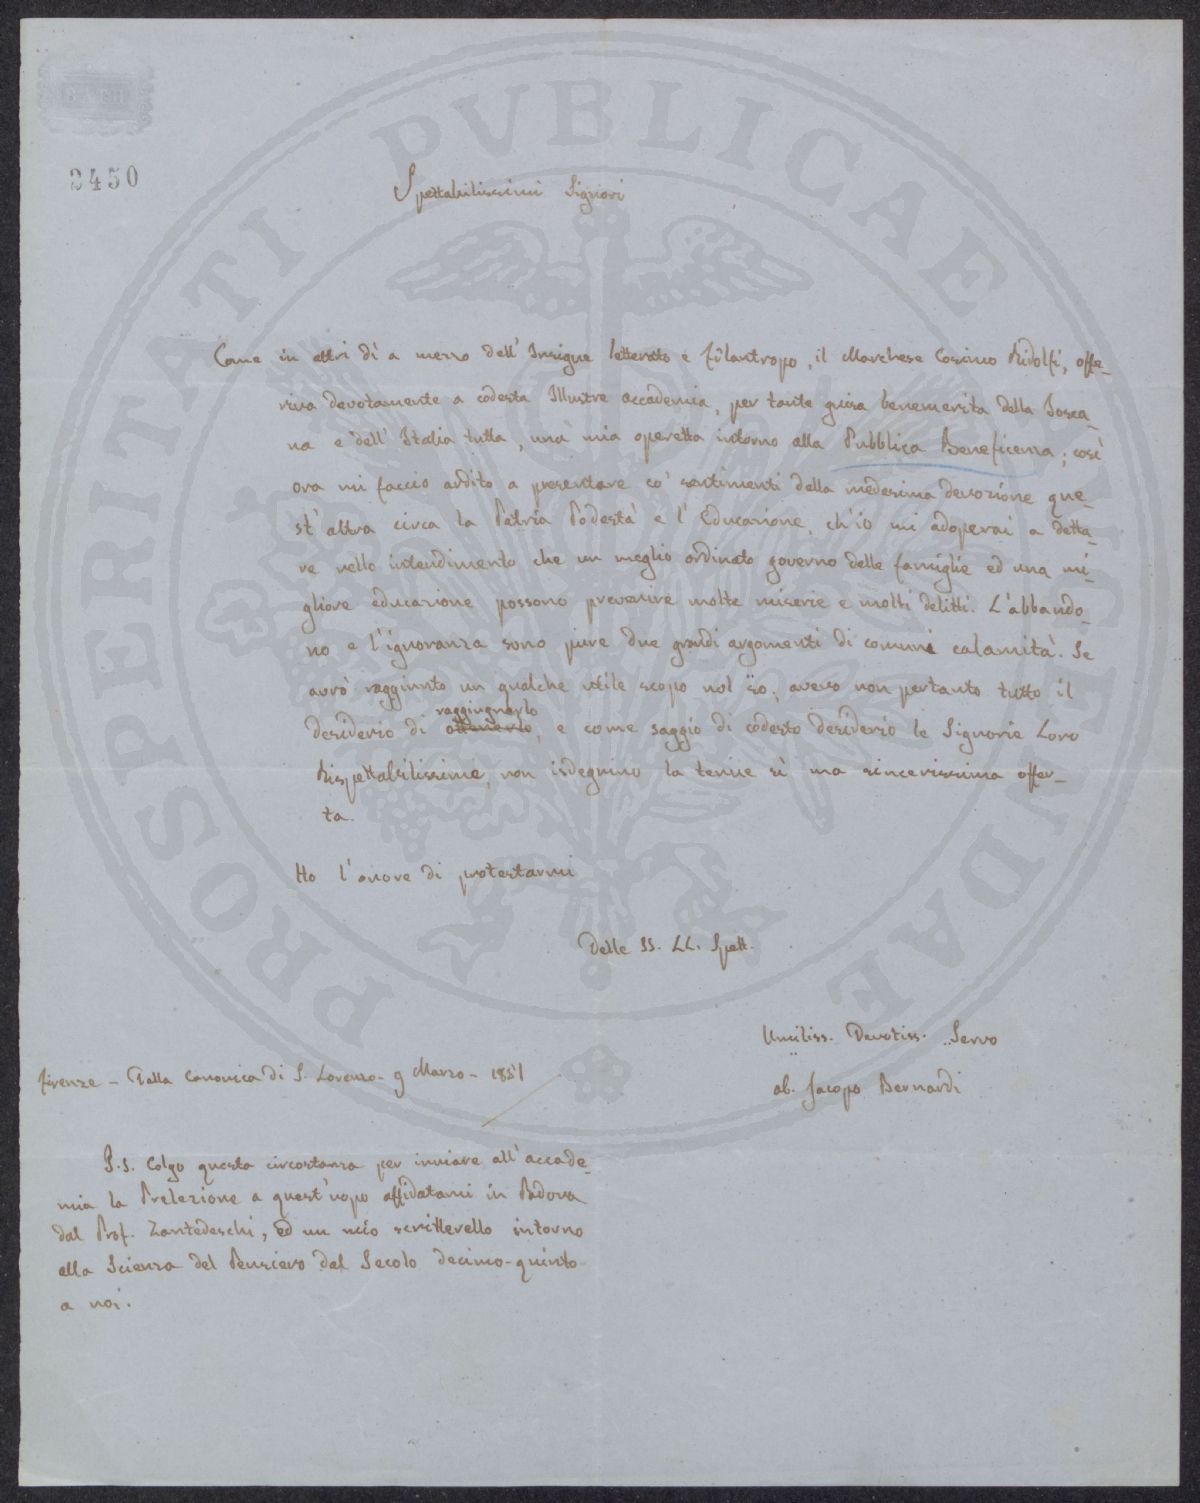 BATH
2450
PROSPERITATI PVBLICAE AVGENDAE
Spettabilissimi Signori
Come in altri dì a mezzo dell' Insigne letterato e filantropo, il Marchese Cosimo Ridolfi, offe-
riva devotamente a codesta Illustre accademia, per tante guisa benemerita della Tosca-
na e dell' Italia tutta, una mia operetta intorno alla Pubblica Beneficenza; così
ora mi faccio ardito a presentare co' sentimenti della medesima devozione que-
st' altra circa la Patria Podestà e l' Educazione, ch'io mi adoperai a detta-
re nello intendimento che un meglio ordinato governo delle famiglie ed una mi-
gliore educazione possono prevenire molte miserie e molti delitti. L'abbando-
no e l'ignoranza sono pure due grandi argomenti di comuni calamità. Se
avrò raggiunto un qualche utile scopo nol so; avevo non pertanto tutto il
raggiugnerlo
desiderio di ottenerlo, e come saggio di codesto desiderio le Signorie Loro
Rispettabilissime, non isdegnino la tenue sì ma sincerissima offer-
ta.
Ho l'onore di protestarmi
Delle SS. LL. Spett.
Umiliss. Devotiss. Servo
Firenze - Dalla Canonica di S. Lorenzo - 9 Marzo - 1851
ab. Jacopo Bernardi
P.S. Colgo questa circostanza per inviare all'accade-
mia la Prelezione a quest'uopo affidatami in Padova
dal Prof. Zantedeschi, ed un mio scritterello intorno
alla Scienza del Pensiero dal Secolo decimo-quinto
a noi.